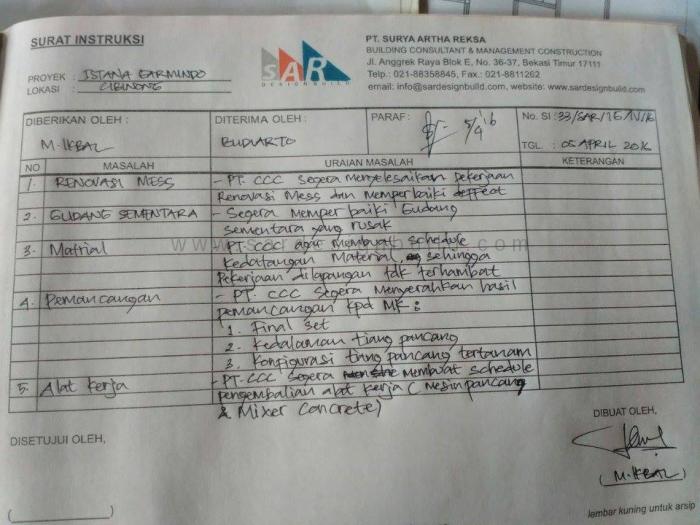 SURAT INSTRUKSI
PROYEK : ISTANA GARMINDO
LOKASI : CIBINONG
SAR
DESIGN BUILD
PT. SURYA ARTHA REKSA
BUILDING CONSULTANT & MANAGEMENT CONSTRUCTION
Jl. Anggrek Raya Blok E, No. 36-37, Bekasi Timur 17111
Telp.: 021-88358845, Fax.: 021-8811262
email: info@sardesignbuild.com, website: www.sardesignbuild.com
DIBERIKAN OLEH : DITERIMA OLEH : PARAF : No. SI : 33/SAR/IG/IV/16
M. IKBAL BUDIARTO 5/4 16 TGL. : 05 APRIL 2016
NO MASALAH URAIAN MASALAH KETERANGAN
1. RENOVASI MESS - PT. CCC segera menyelesaikan pekerjaan
Renovasi Mess dan memperbaiki deffect
2. GUDANG SEMENTARA - Segera memperbaiki Gudang
sementara yang rusak
3. Matrial - PT. CCC agar membuat schedule
Kedatangan Material, sehingga
pekerjaan dilapangan tdk terhambat
4. Pemancangan - PT. CCC segera menyerahkan hasil
pemancangan kpd MK :
1. Final set
2. Kedalaman tiang pancang
3. Konfigurasi tiang pancang tertanam
5. Alat Kerja - PT. CCC segera membuat schedule
pengembalian alat kerja ( mesin pancang
& Mixer Concrete)
DISETUJUI OLEH, DIBUAT OLEH,
( ) ( M. IKBAL )
lembar kuning untuk arsip